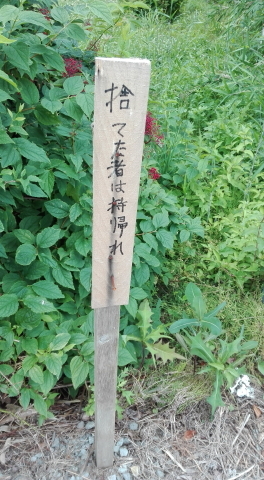 捨てた者は持帰れ